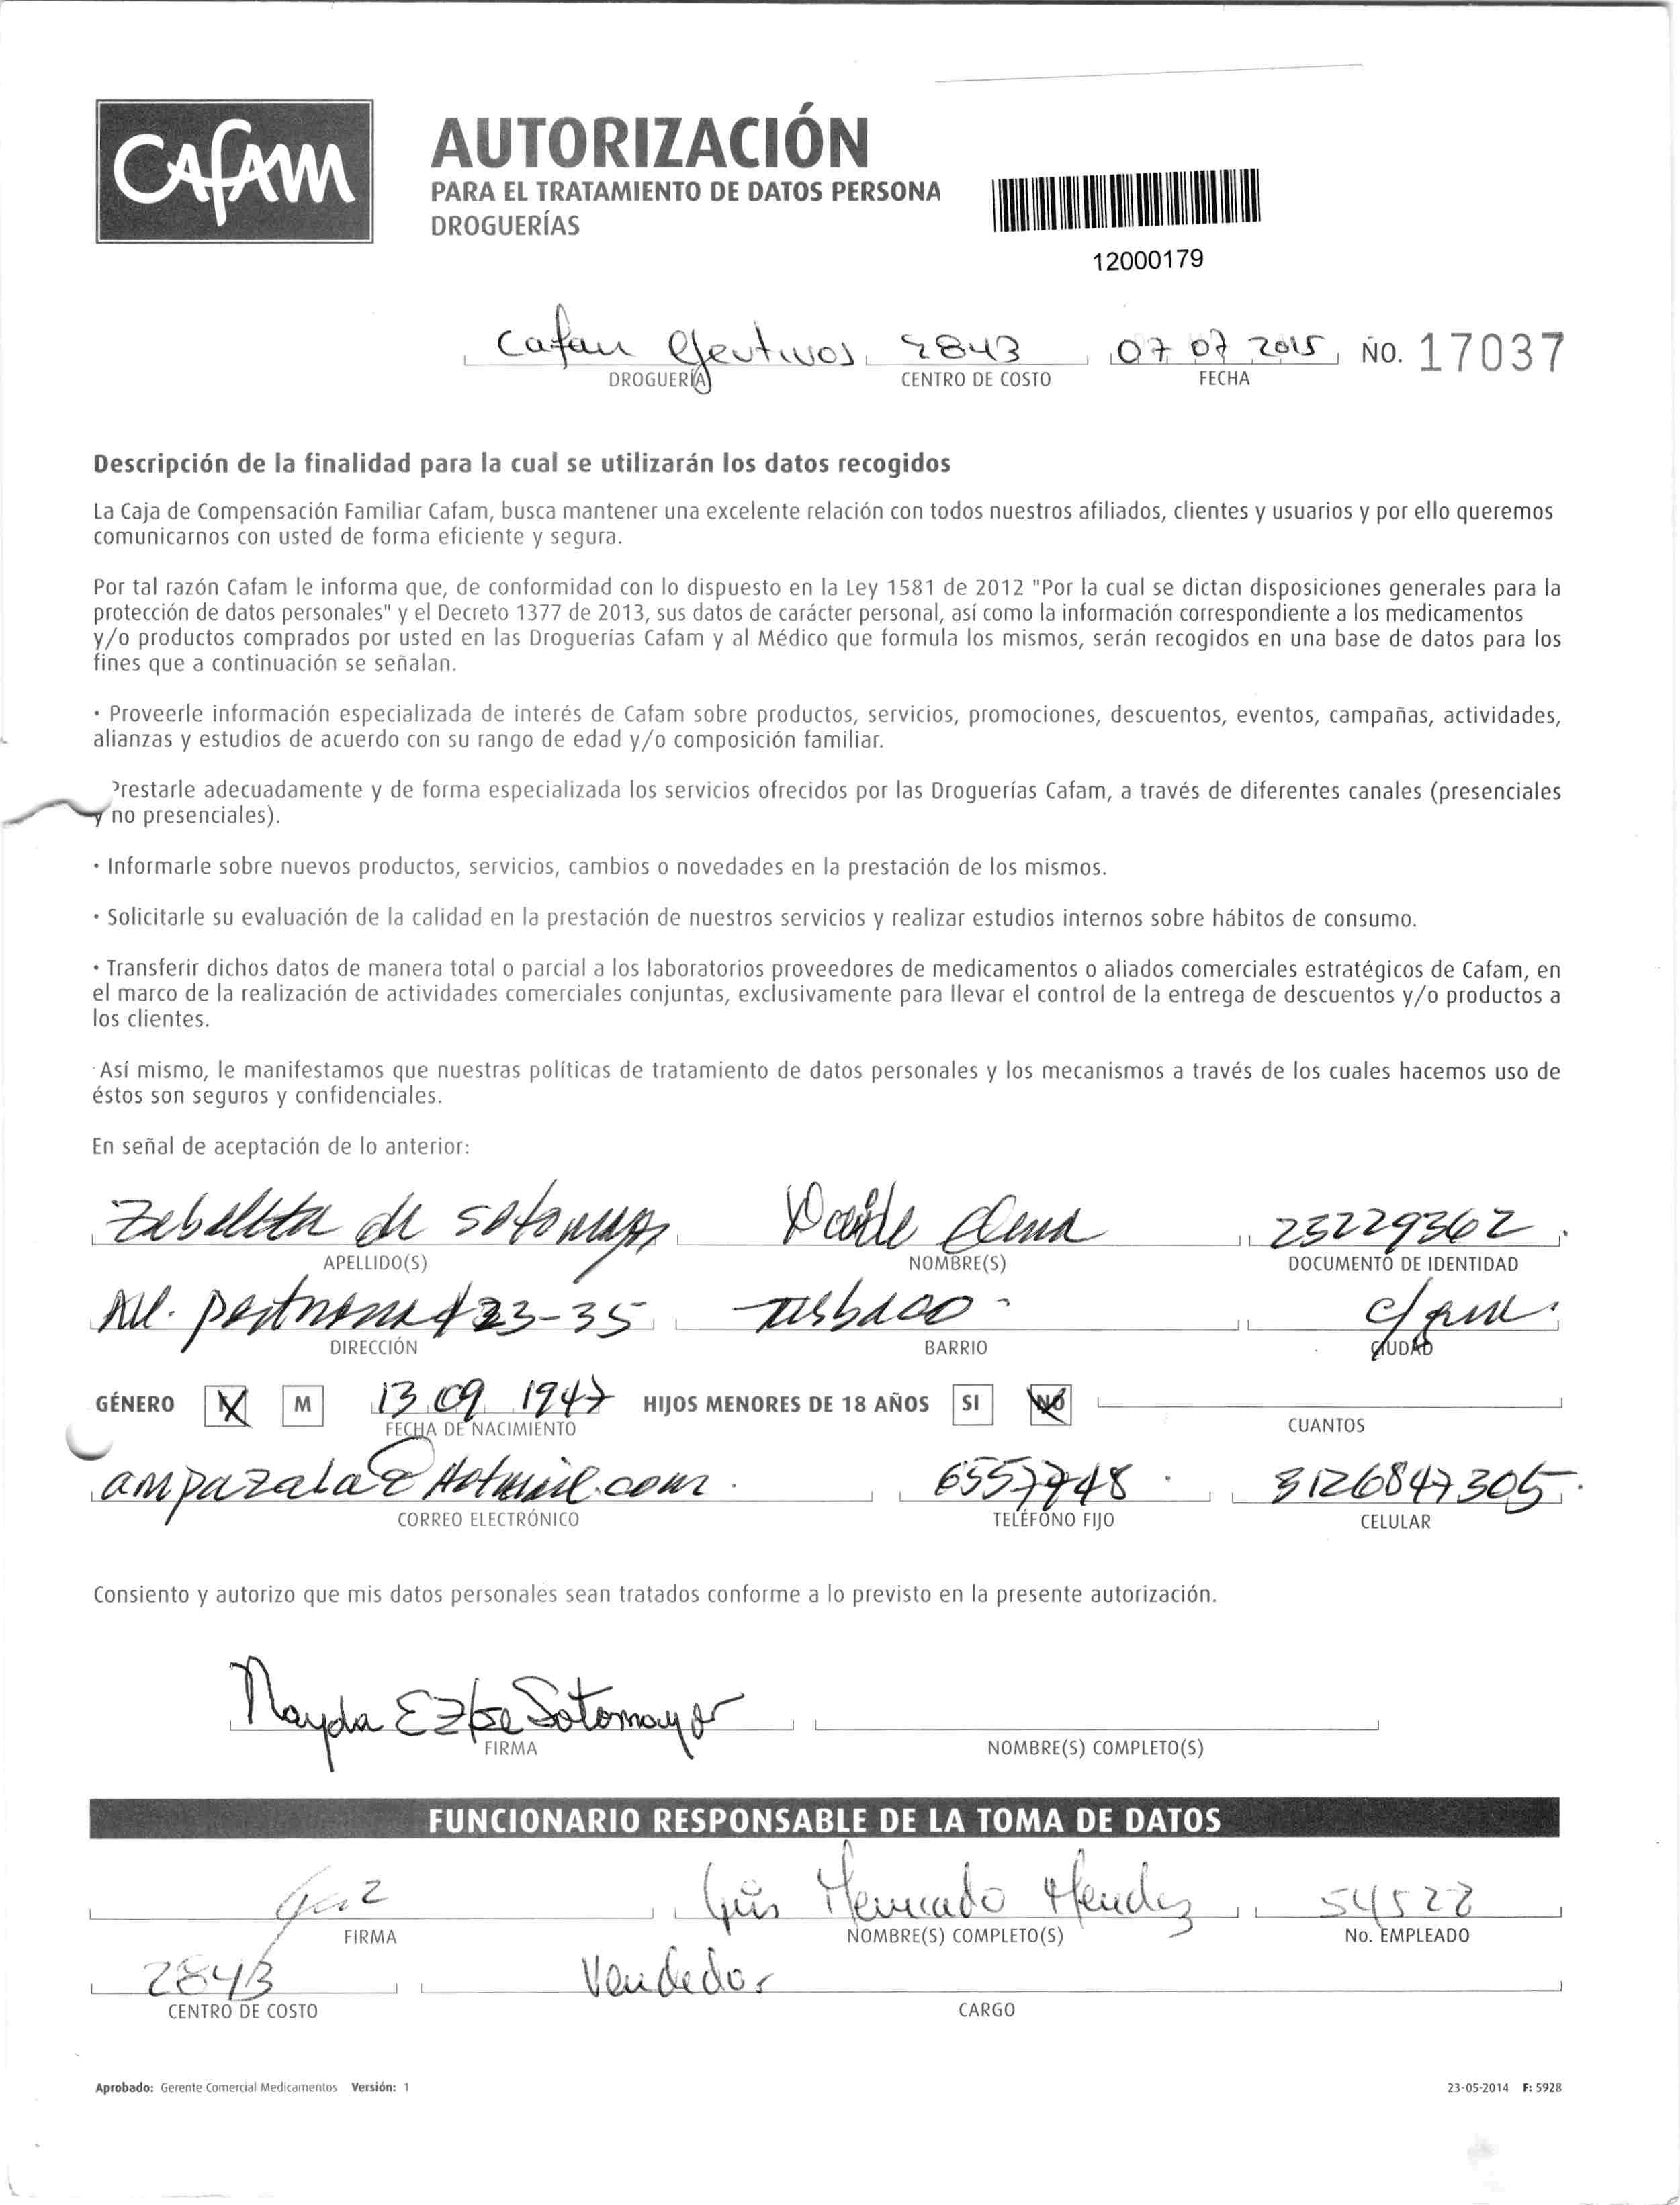 CAFAM
AUTORIZACIÓN
PARA EL TRATAMIENTO DE DATOS PERSONA
DROGUERÍAS
12000179
Cafam Ejecutivos 2843 07 07 2015 No. 17037
DROGUERÍA CENTRO DE COSTO FECHA
Descripción de la finalidad para la cual se utilizarán los datos recogidos
La Caja de Compensación Familiar Cafam, busca mantener una excelente relación con todos nuestros afiliados, clientes y usuarios y por ello queremos
comunicarnos con usted de forma eficiente y segura.
Por tal razón Cafam le informa que, de conformidad con lo dispuesto en la Ley 1581 de 2012 "Por la cual se dictan disposiciones generales para la
protección de datos personales" y el Decreto 1377 de 2013, sus datos de carácter personal, así como la información correspondiente a los medicamentos
y/o productos comprados por usted en las Droguerías Cafam y al Médico que formula los mismos, serán recogidos en una base de datos para los
fines que a continuación se señalan.
· Proveerle información especializada de interés de Cafam sobre productos, servicios, promociones, descuentos, eventos, campañas, actividades,
alianzas y estudios de acuerdo con su rango de edad y/o composición familiar.
Prestarle adecuadamente y de forma especializada los servicios ofrecidos por las Droguerías Cafam, a través de diferentes canales (presenciales
y no presenciales).
· Informarle sobre nuevos productos, servicios, cambios o novedades en la prestación de los mismos.
· Solicitarle su evaluación de la calidad en la prestación de nuestros servicios y realizar estudios internos sobre hábitos de consumo.
· Transferir dichos datos de manera total o parcial a los laboratorios proveedores de medicamentos o aliados comerciales estratégicos de Cafam, en
el marco de la realización de actividades comerciales conjuntas, exclusivamente para llevar el control de la entrega de descuentos y/o productos a
los clientes.
· Así mismo, le manifestamos que nuestras políticas de tratamiento de datos personales y los mecanismos a través de los cuales hacemos uso de
éstos son seguros y confidenciales.
En señal de aceptación de lo anterior:
de Sotomayor Elena 23229362
APELLIDO(S) NOMBRE(S) DOCUMENTO DE IDENTIDAD
23-35 Turbaco - C/gena.
DIRECCIÓN BARRIO CIUDAD
GÉNERO M 13 09 1947 HIJOS MENORES DE 18 AÑOS SI NO
FECHA DE NACIMIENTO CUANTOS
ampazala@Hotmail.com. 6557748. 3126847305.
CORREO ELECTRÓNICO TELÉFONO FIJO CELULAR
Consiento y autorizo que mis datos personales sean tratados conforme a lo previsto en la presente autorización.
Nayda Sotomayor
FIRMA NOMBRE(S) COMPLETO(S)
FUNCIONARIO RESPONSABLE DE LA TOMA DE DATOS
Luis Mercado Mendez 54522
FIRMA NOMBRE(S) COMPLETO(S) No. EMPLEADO
2843 Vendedor
CENTRO DE COSTO CARGO
Aprobado: Gerente Comercial Medicamentos Versión: 1 23-05-2014 F: 5928